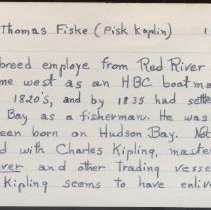 Thomas Fiske (Pisk Kaplin) 1
breed employe from Red River
me west as an HBC boatma
1820's, and by 1835 had sett
Bay as a fisherman. He was
een born on Hudson Bay. Not
d with Charles Kipling, master
ver and other Trading vesse
Kipling seems to have enliv